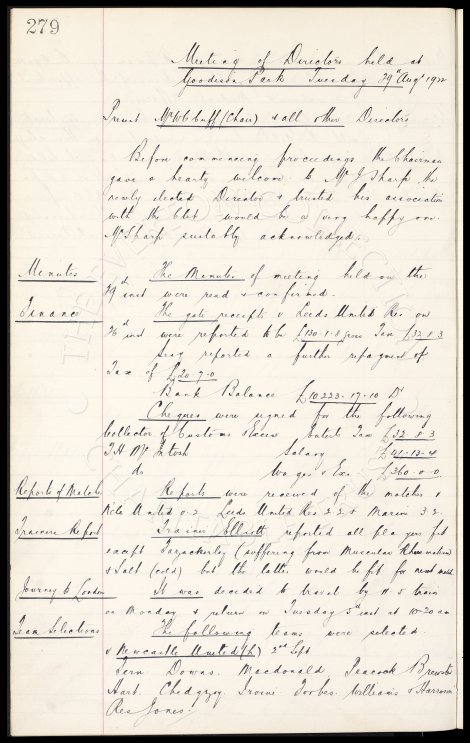 279
Meeting of Directors held at
Goodison Park Tuesday 29th Augt 1922
Present Mr W C Cuff (Chair) & all other Directors
Before commencing proceedings the Chairman
gave a hearty welcome to Mr J Sharp the
newly elected Director & trusted his association
with the club would be a very happy one.
Mr Sharp suitably acknowledged.
Minutes The Minutes of meeting held on the
inst were read & confirmed.
Finance The gate receipts v Leeds United Res on
26th inst were reported to be £130.1.8 Tax £32.8.3
Secy reported a further repayment of
Tax of £20.7.0
Bank Balance £10223.17.10 Dr
Cheques were signed for the following
Collector of Customs & Excise Tax £32.8.3
T.H. McIntosh Salary £41.13.4
do Wages & Exs £360.0.0
Reports of Matches Reports were received of the matches v
Newcastle United 0.2 Leeds United Res 2.2 & Marine 3.2.
Trainers Report Trainer Elliott reported all players fit
except (suffering from Muscular Rheumatism)
& Salt (cold) but the latter would be fit for next match.
Journey to London It was decided to travel by 11.5 train
on Monday & return on Tuesday 5th inst at 10-20 am
Team Selections The following teams were selected.
v Newcastle United (h) 2nd Sept
Fern. Downs. Macdonald. Peacock. Brewster
Hart. Chedgzoy. Irvine. Forbes. Williams & Harrison
Res Jones.